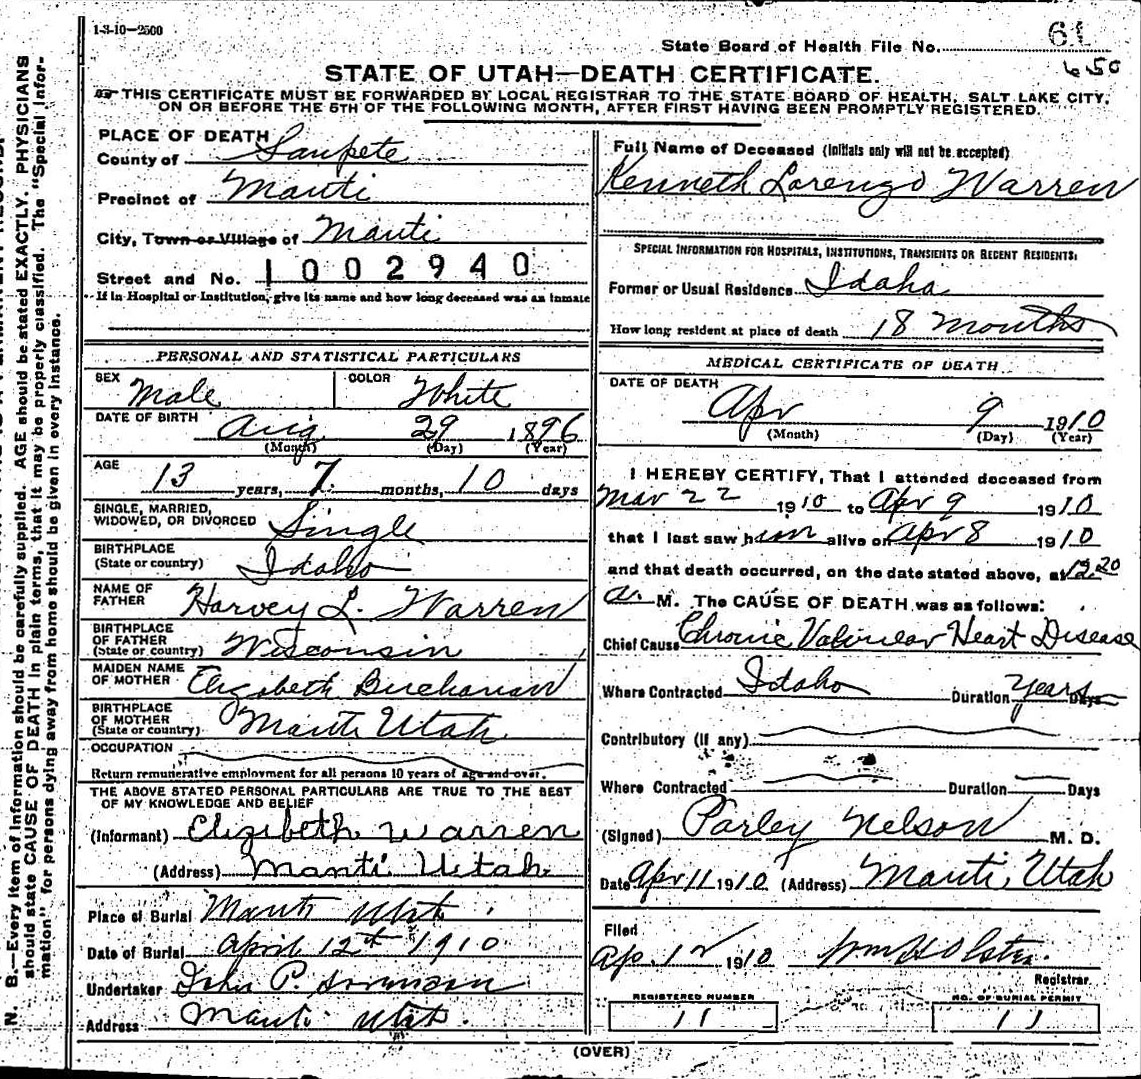 1-3-10-2500
State Board of Health File No. 61
650
STATE OF UTAH—DEATH CERTIFICATE.
THIS CERTIFICATE MUST BE FORWARDED BY LOCAL REGISTRAR TO THE STATE BOARD OF HEALTH, SALT LAKE CITY,
ON OR BEFORE THE 5TH OF THE FOLLOWING MONTH, AFTER FIRST HAVING BEEN PROMPTLY REGISTERED.
PLACE OF DEATH
County of Sanpete
Precinct of Manti
City, Town or Village of Manti
Street and No. 1002940
If in Hospital or Institution, give its name and how long deceased was an inmate
PERSONAL AND STATISTICAL PARTICULARS
SEX Male COLOR White
DATE OF BIRTH Aug 29 1896
(Month) (Day) (Year)
AGE 13 years, 7 months, 10 days
SINGLE, MARRIED,
WIDOWED, OR DIVORCED Single
BIRTHPLACE
(State or country) Idaho
NAME OF
FATHER Harvey L. Warren
BIRTHPLACE
OF FATHER
(State or country) Wisconsin
MAIDEN NAME
OF MOTHER Elizabeth Buchanan
BIRTHPLACE
OF MOTHER
(State or country) Manti Utah
OCCUPATION
Return remunerative employment for all persons 10 years of age and over.
THE ABOVE STATED PERSONAL PARTICULARS ARE TRUE TO THE BEST
OF MY KNOWLEDGE AND BELIEF
(Informant) Elizibeth Warren
(Address) Manti Uttah
Place of Burial Manti Utah
Date of Burial April 12th 1910
Undertaker John P. Sorenson
Address Manti Utah
Full Name of Deceased (Initials only will not be accepted)
Kenneth Lorenzo Warren
SPECIAL INFORMATION FOR HOSPITALS, INSTITUTIONS, TRANSIENTS OR RECENT RESIDENTS:
Former or Usual Residence Idaho
How long resident at place of death 18 months
MEDICAL CERTIFICATE OF DEATH
DATE OF DEATH
Apr 9 1910
(Month) (Day) (Year)
I HEREBY CERTIFY, That I attended deceased from
Mar 22 1910 to Apr 9 1910
that I last saw him alive on Apr 8 1910
and that death occurred, on the date stated above, at 12.20
a. M. The CAUSE OF DEATH was as follows:
Chief Cause Chronic Valvular Heart Disease
Where Contracted Idaho Duration Years Days
Contributory (if any)
Where Contracted Duration Days
(Signed) Parley Nelson M. D.
Date Apr 11 1910 (Address) Manti, Utah
Filed
Apr. 12 1910 Wm H Olsten.
Registrar
REGISTERED NUMBER
11
NO. OF BURIAL PERMIT
11
(OVER)
N. B.—Every item of information should be carefully supplied. AGE should be stated EXACTLY. PHYSICIANS
should state CAUSE OF DEATH in plain terms, that it may be properly classified. The "Special Infor-
mation" for persons dying away from home should be given in every instance.